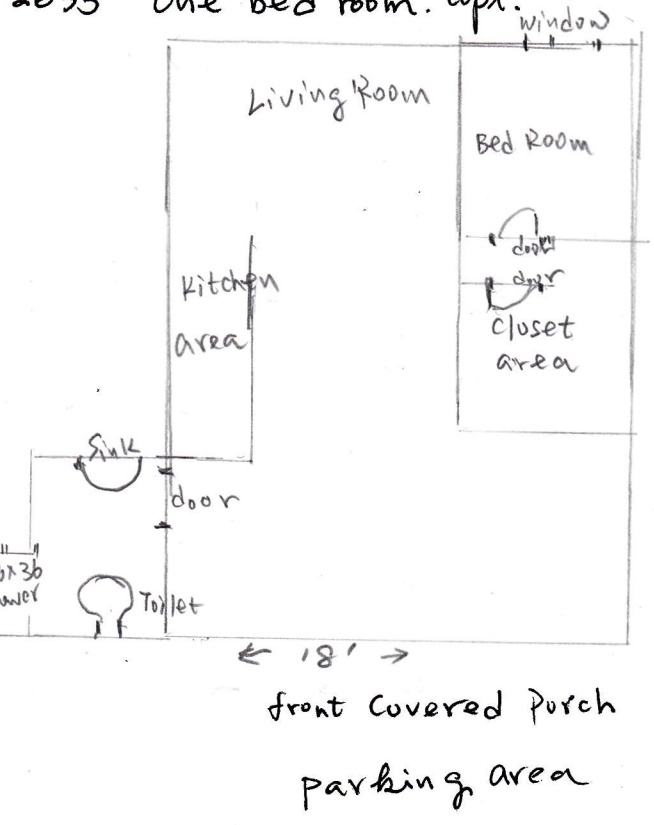 One bed room. Apt.
window
Living Room
Bed Room
door
door
Kitchen
area
Closet
area
Sink
door
Toilet
← 18' →
front Covered Porch
parking area